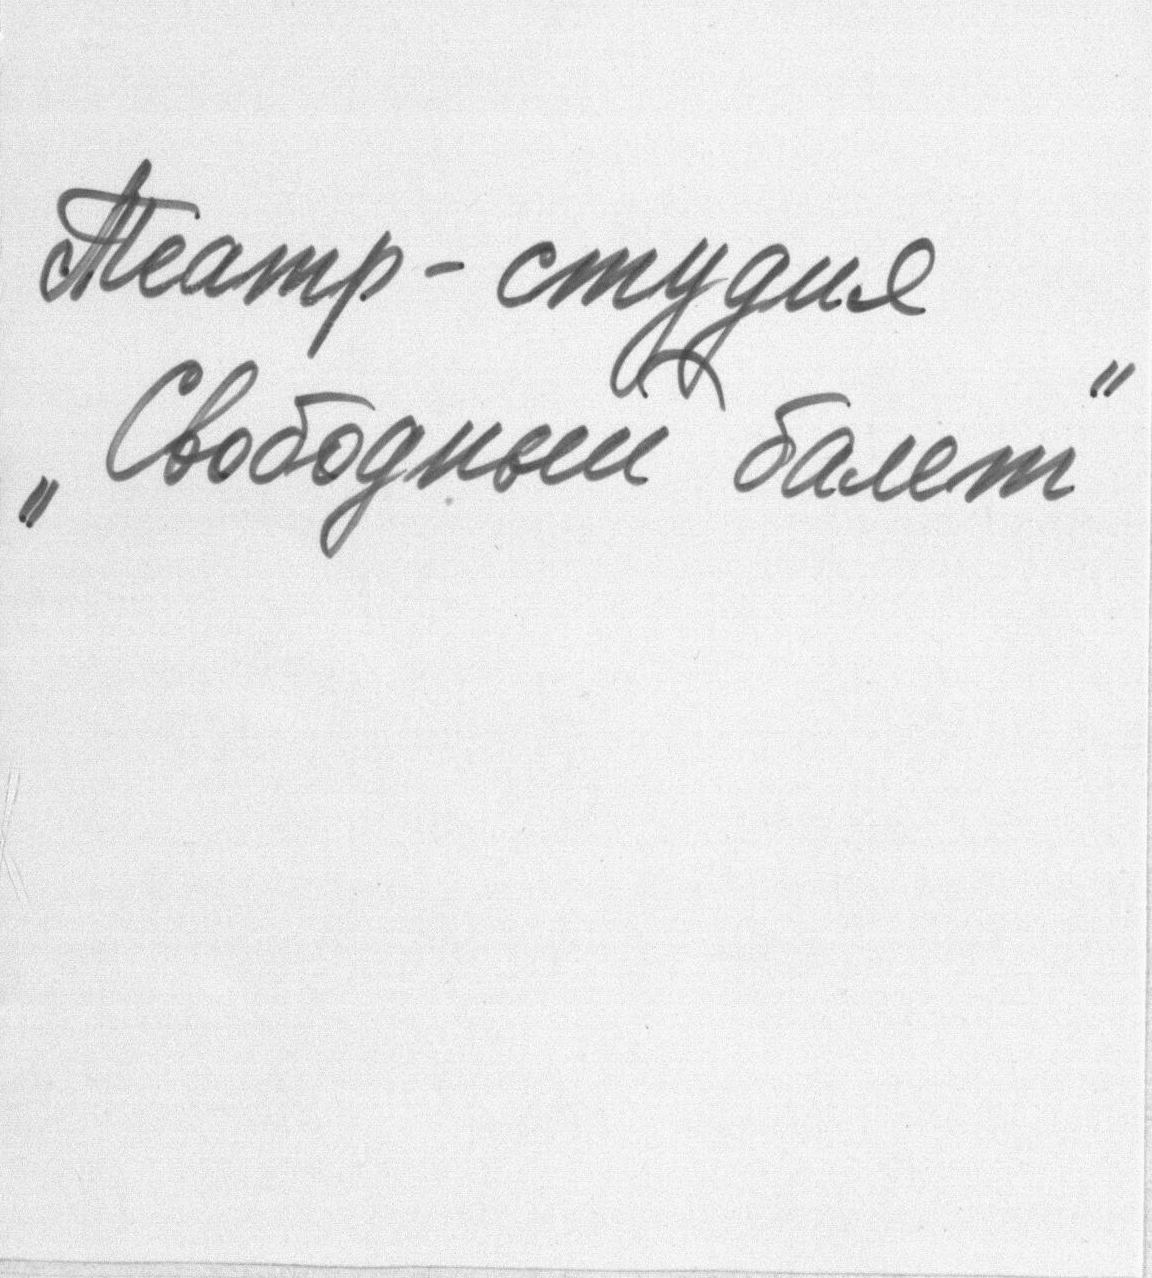 Театр-студия
„Свободный балет"